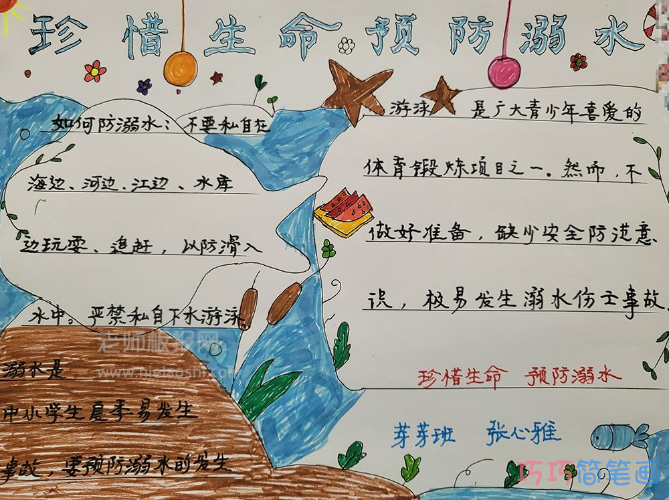 珍惜生命预防溺水
如何防溺水：不要私自在
海边、河边、江边、水库
边玩耍、追赶，以防滑入
水中。严禁私自下水游泳
溺水是
中小学生夏季易发生
事故，要预防溺水的发生
游泳 是广大青少年喜爱的
体育锻炼项目之一。然而，不
做好准备，缺少安全防范意
识，极易发生溺水伤亡事故
珍惜生命 预防溺水
芽芽班 张心雅
老师板报网
巧巧简笔画